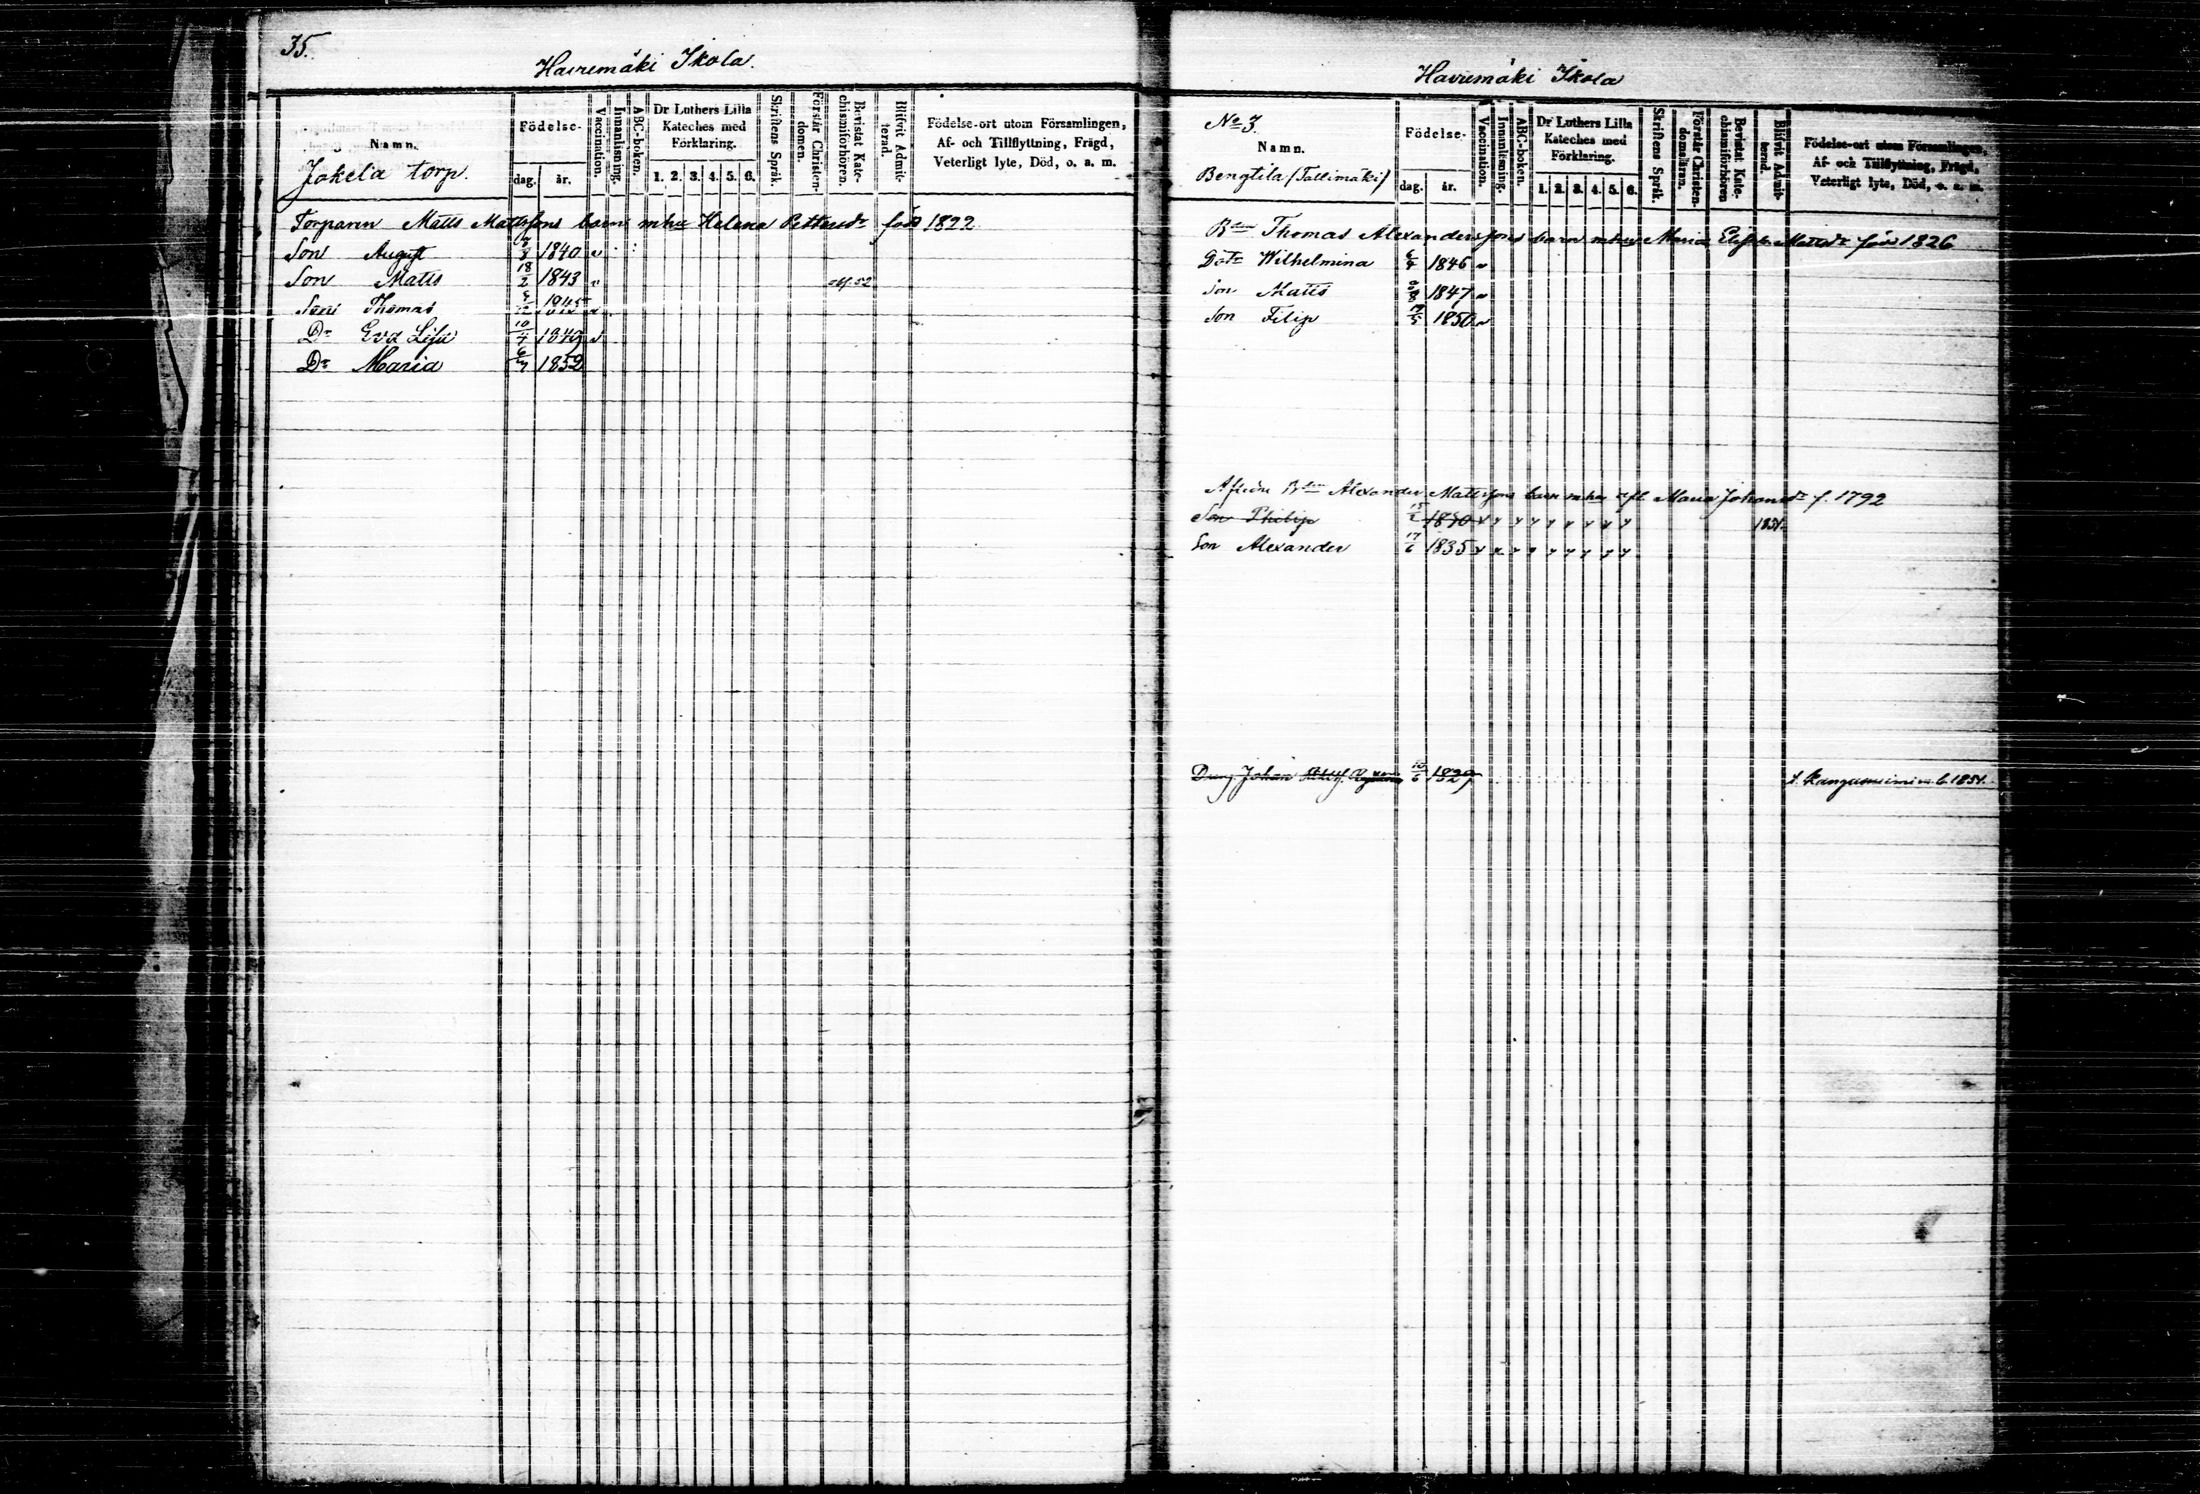 35.
Havremäki Ikola.
Namn.
Jokela torp.
Födelse-
dag. år.
Vaccination.
Innanläsning.
ABC-boken.
Dr Luthers Lilla Kateches med Förklaring.
1. 2. 3. 4. 5. 6.
Skriftens Språk.
Förstår Christendomen.
Bevistat Katechismiförhören.
Blifvit Admitterad.
Födelse-ort utom Församlingen, Af- och Tillflyttning, Frägd, Veterligt lyte, Död, o. a. m.
Torparen Matts Mattssons barn mhu Helena Pettersdr född 1822
Son August 1840
Son Matts 18/2 1843 52
Son Thomas
Dr Eva Lisa 10/4 1849
Dr Maria 1852
Havremäki Ikola
No 3.
Namn.
Bengtila (Tallimäki)
Födelse-
dag. år.
Vaccination.
Innanläsning.
ABC-boken.
Dr Luthers Lilla Kateches med Förklaring.
1. 2. 3. 4. 5. 6.
Skriftens Språk.
Förstår Christendomsläran.
Bevistat Katechismiförhören
Blifvit Admitterad.
Födelse-ort utom Församlingen, Af- och Tillflyttning, Frägd, Veterligt lyte, Död, o. a. m.
Bden Thomas Alexanderssons barn mhu Maria Mattsdr född 1826
Dotr Wilhelmina 1846
Son Matts 1847
Son Filip 1850
Aflidne Bden Alexander Mattssons barn mhu Maria Johansdr f. 1792
Son Philip 1830 1851.
Son Alexander 17/6 1835
Dräng Johan 10/6 1829 1851.